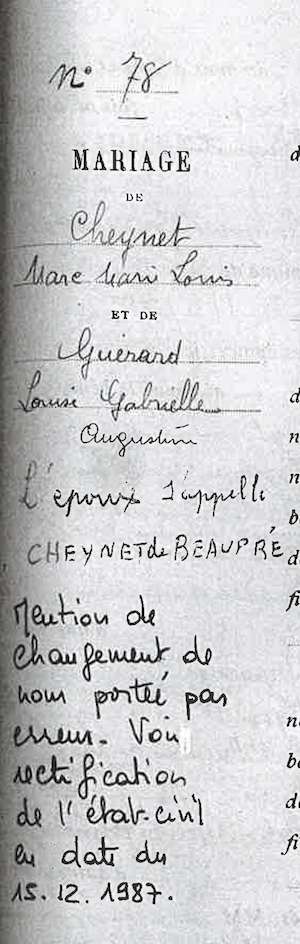 N° 78
MARIAGE
DE
Cheynet
Marc Marie Louis
ET DE
Guérard
Louise Gabrielle
Augustine
L'époux s'appelle
CHEYNET de BEAUPRÉ
Mention de
changement de
nom portée par
erreur. Voir
rectification
de l'état-civil
en date du
15.12.1987.
d
d
n
n
b
d
fi
n
b
d
fi